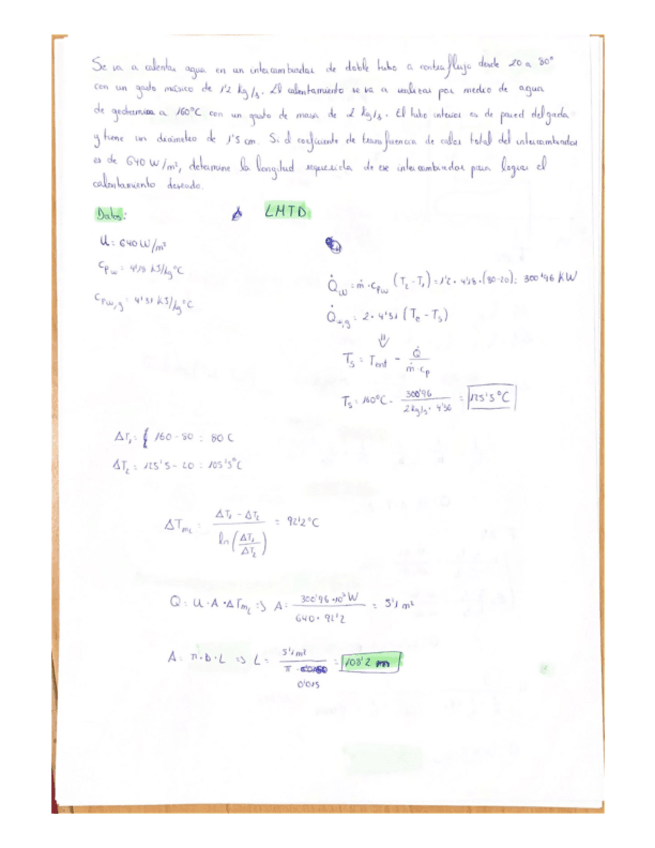 Se va a calentar agua en un intercambiador de doble tubo a contraflujo desde 20 a 80°
con un gasto másico de 1'2 kg/s. El calentamiento se va a realizar por medio de agua
de geotermica a 160°C con un gasto de masa de 2 kg/s. El tubo interior es de pared delgada
y tiene un diámetro de 1'5 cm. Si el coeficiente de transferencia de calor total del intercambiador
es de 640 W/m², determine la longitud requerida de ese intercambiador para lograr el
calentamiento deseado.
Datos:
LMTD
U: 640 W/m²
Cpw = 4'18 kJ/kg°C
Cpw,g: 4'31 kJ/kg°C
Q̇w = ṁ·Cpw (T2 - T1) = 1'2 · 4'18 · (80-20): 300'96 KW
Q̇w,g = 2 · 4'31 (TE - TS)
⇓
TS = Tent - Q̇ / ṁ·cp
TS: 160°C - 300'96 / 2kg/s · 4'36 = 125'5°C
ΔT1 = 160-80 : 80 C
ΔT2 = 125'5 - 20 = 105'5°C
ΔTmL = ΔT1 - ΔT2 / ln(ΔT1/ΔT2) = 92'2°C
Q = U·A·ΔTmL => A = 300'96·10³ W / 640 · 92'2 = 5'1 m²
A = π·D·L => L = 5'1 m² / π · 0'015 = 108'2 m